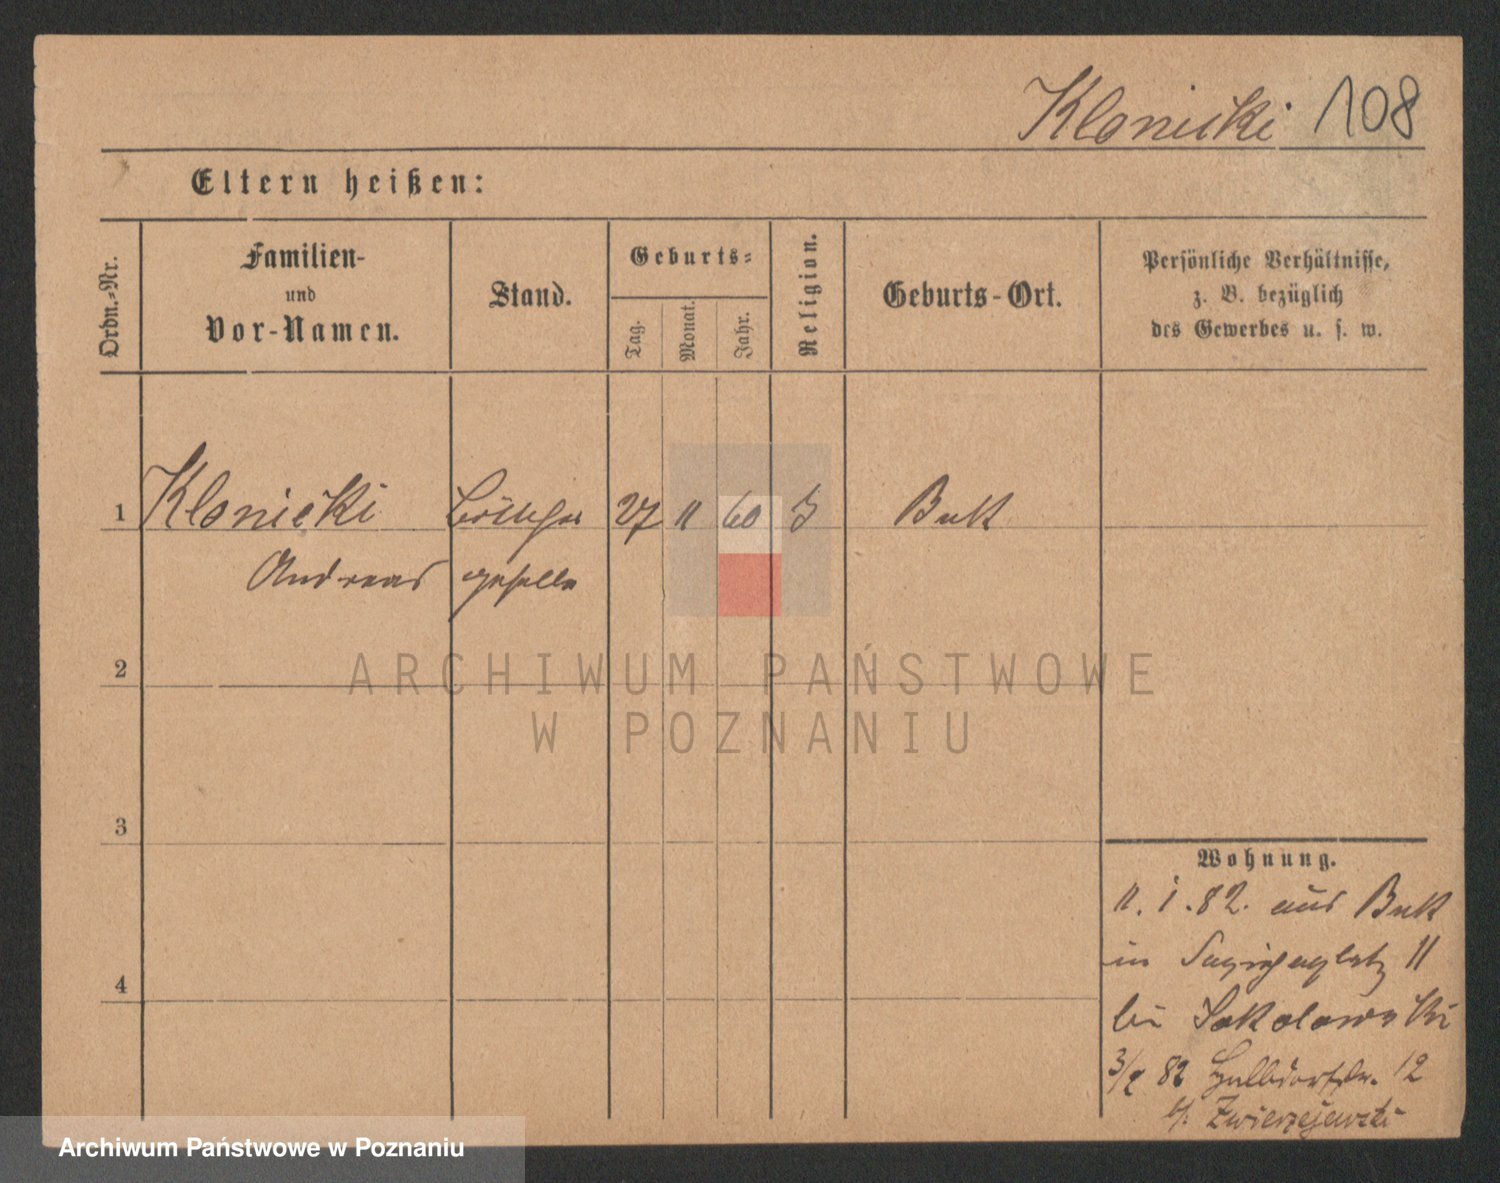 Klonicki 108
Eltern heißen:
Ordn.-Nr.
Familien-
und
Vor-Namen.
Stand.
Geburts-
Tag.
Monat.
Jahr.
Religion.
Geburts-Ort.
Persönliche Verhältnisse,
z. B. bezüglich
des Gewerbes u. s. w.
1 Klonicki Böttcher 27 11 60 Buk
Andreas geselle
2
3
4
ARCHIWUM PAŃSTWOWE
W POZNANIU
Wohnung.
11. 1. 82. aus Buk
in Sapiehaplatz 11
bei Sokolowski
3/2 82 Halbdorfstr. 12
b/. Zwierzejewski
Archiwum Państwowe w Poznaniu